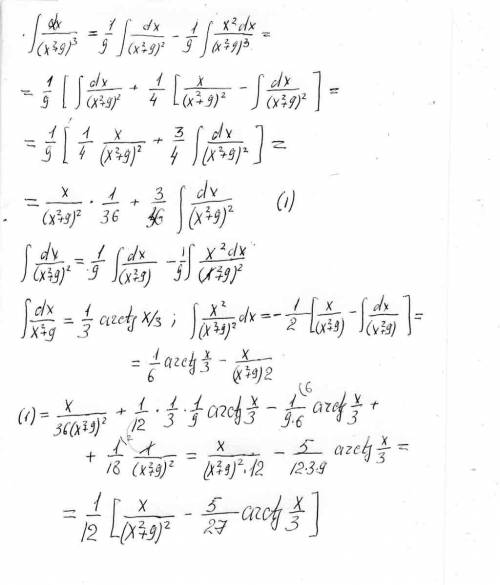 ∫ dx/(x²+9)³ = 1/9 ∫ dx/(x²+9)² − 1/9 ∫ x²dx/(x²+9)³ =
= 1/9 [ ∫ dx/(x²+9)² + 1/4 [ x/(x²+9)² − ∫ dx/(x²+9)² ] =
= 1/9 [ 1/4 x/(x²+9)² + 3/4 ∫ dx/(x²+9)² ] =
= x/(x²+9)² · 1/36 + 3/36 ∫ dx/(x²+9)² (1)
∫ dx/(x²+9)² = 1/9 ∫ dx/(x²+9) − 1/9 ∫ x²dx/(x²+9)²
∫ dx/x²+9 = 1/3 arctg x/3 ; ∫ x²/(x²+9)² dx = −1/2 [ x/(x²+9) − ∫ dx/(x²+9) ] =
= 1/6 arctg x/3 − x/(x²+9)2
(1) = x/36(x²+9)² + 1/12 · 1/3 · 1/9 arctg x/3 − 1/9·6 arctg x/3 +
+ 1/18 x/(x²+9)² = x/(x²+9)²·12 − 5/12·3·9 arctg x/3 =
= 1/12 [ x/(x²+9)² − 5/27 arctg x/3 ]